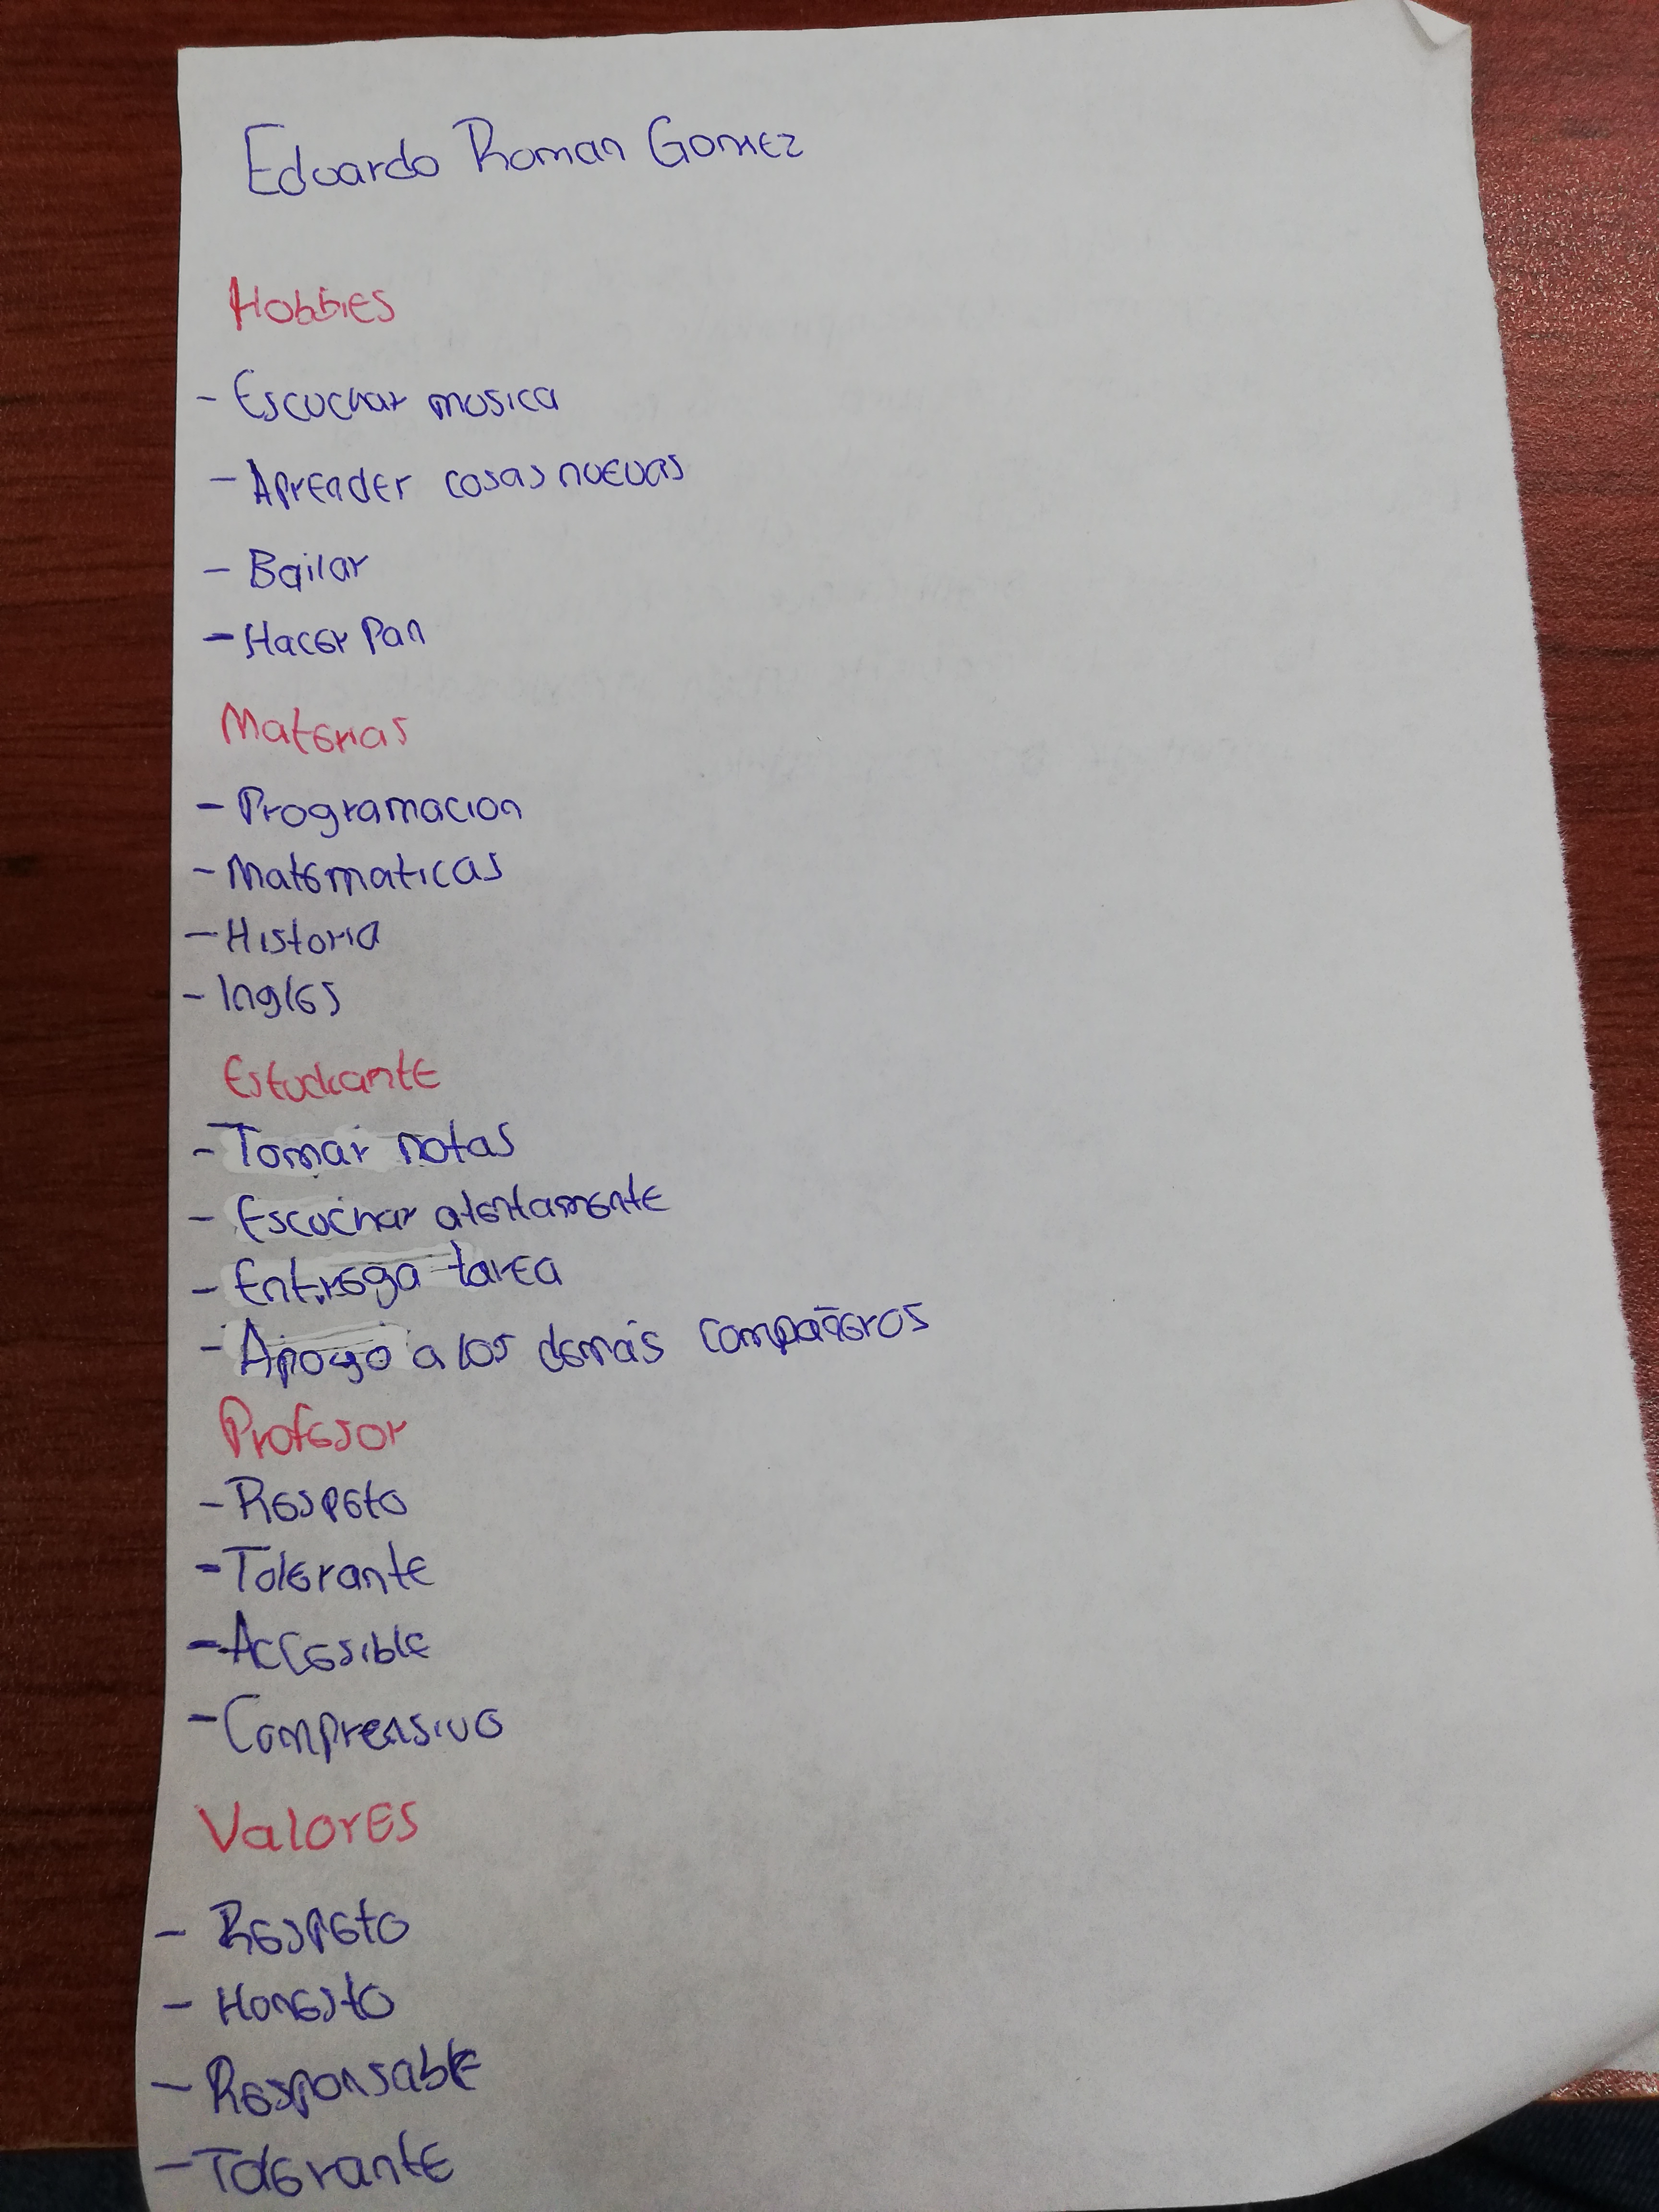 Eduardo Roman Gomez
Hobbies
- Escuchar musica
- Aprender cosas nuevas
- Bailar
- Hacer Pan
Materias
- Programacion
- Matematicas
- Historia
- Ingles
Estudiante
- Tomar notas
- Escuchar atentamente
- Entrega tarea
- Apoyo a los demás compañeros
Profesor
- Respeto
- Tolerante
- Accesible
- Comprensivo
Valores
- Respeto
- Honesto
- Responsable
- Tolerante